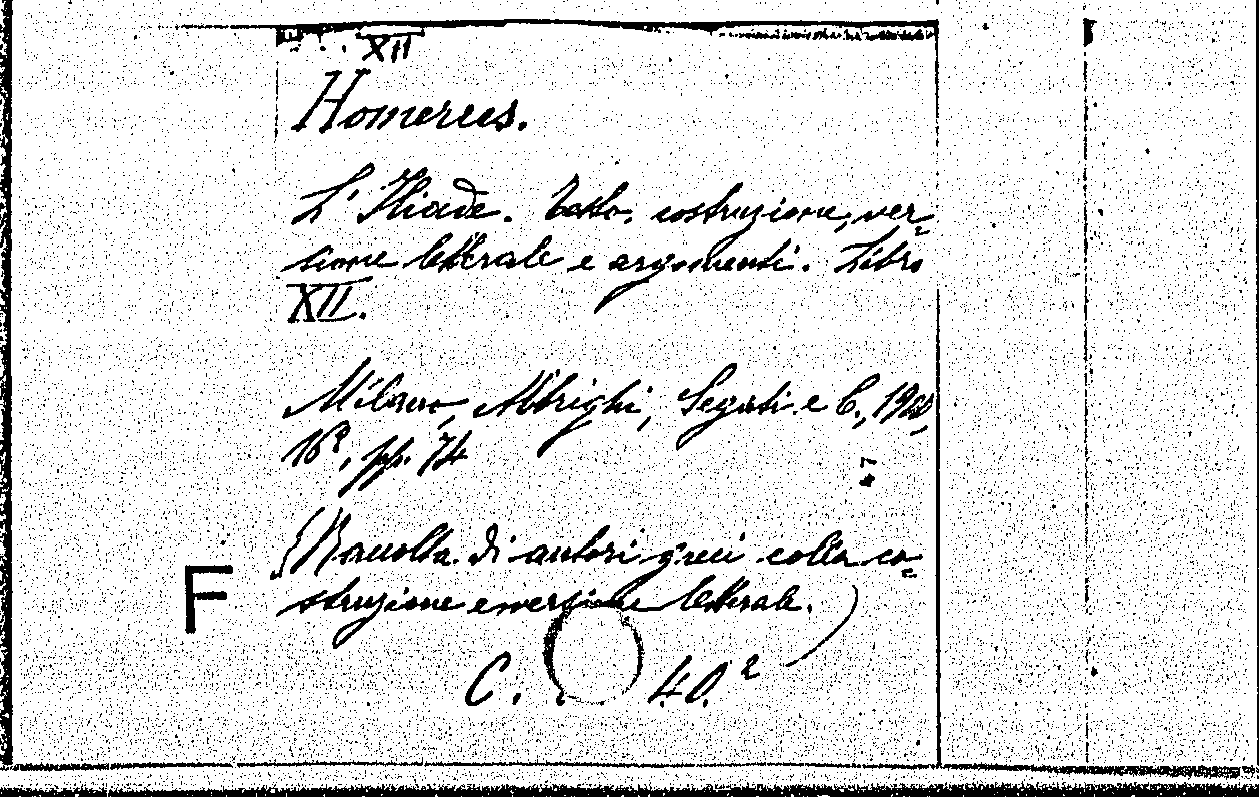 XII
Homerus.
L'Iliade. Testo, costruzione, ver=
sione letterale e argomenti. Libro
XII.
Milano, Albrighi, Segati e C.,
16°, pp. 74
(Raccolta di autori greci colla co=
struzione e versione letterale.)
F
C. 40²